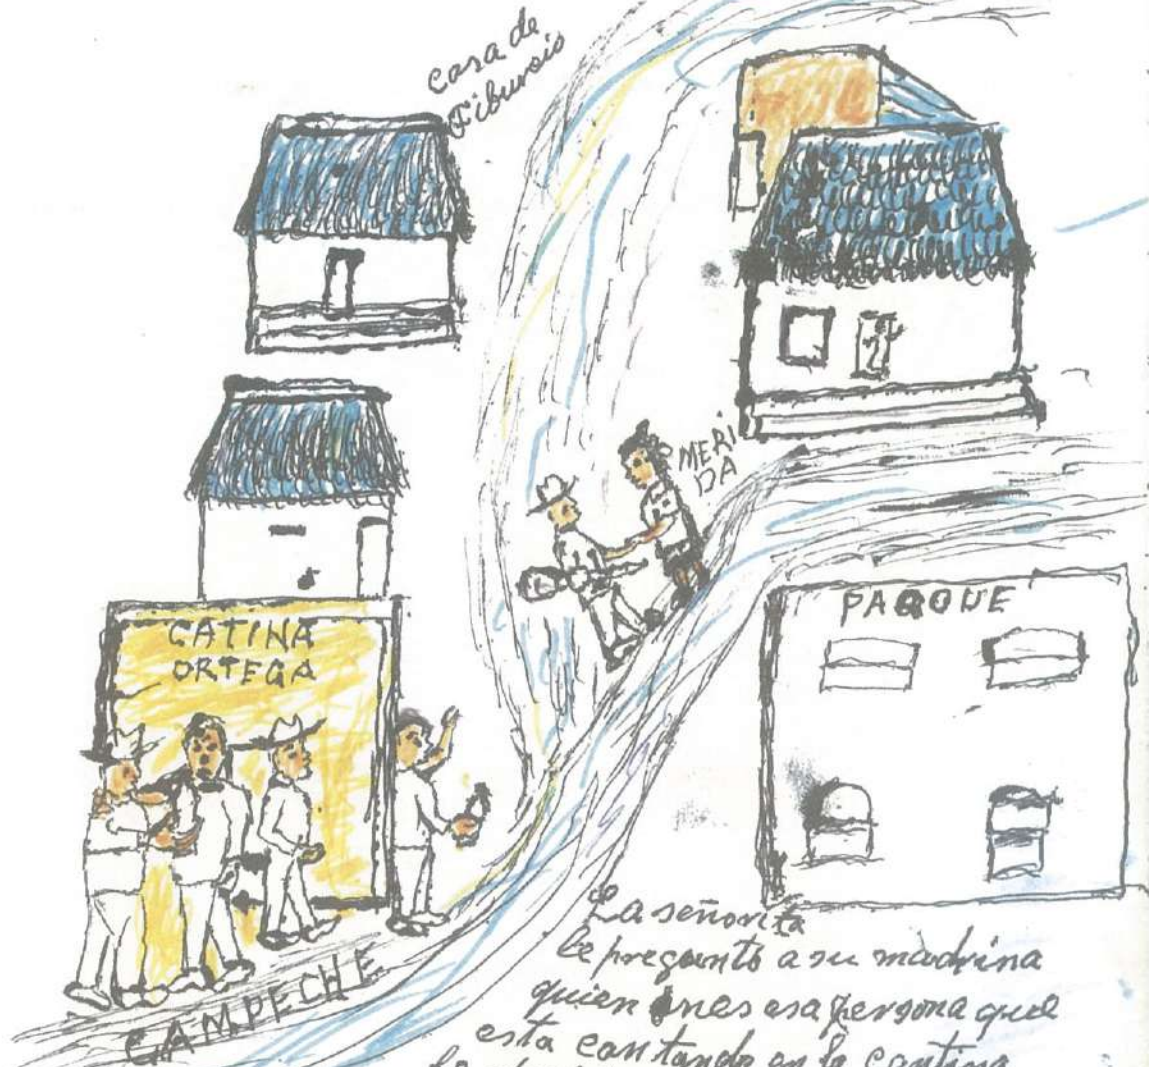 casa de
Tiburcio
MERI
DA
CATINA
ORTEGA
PAQQUE
CAMPECHE
La señorita
le pregunto a su madrina
quien
esa persona que
esta cantando en la cantina